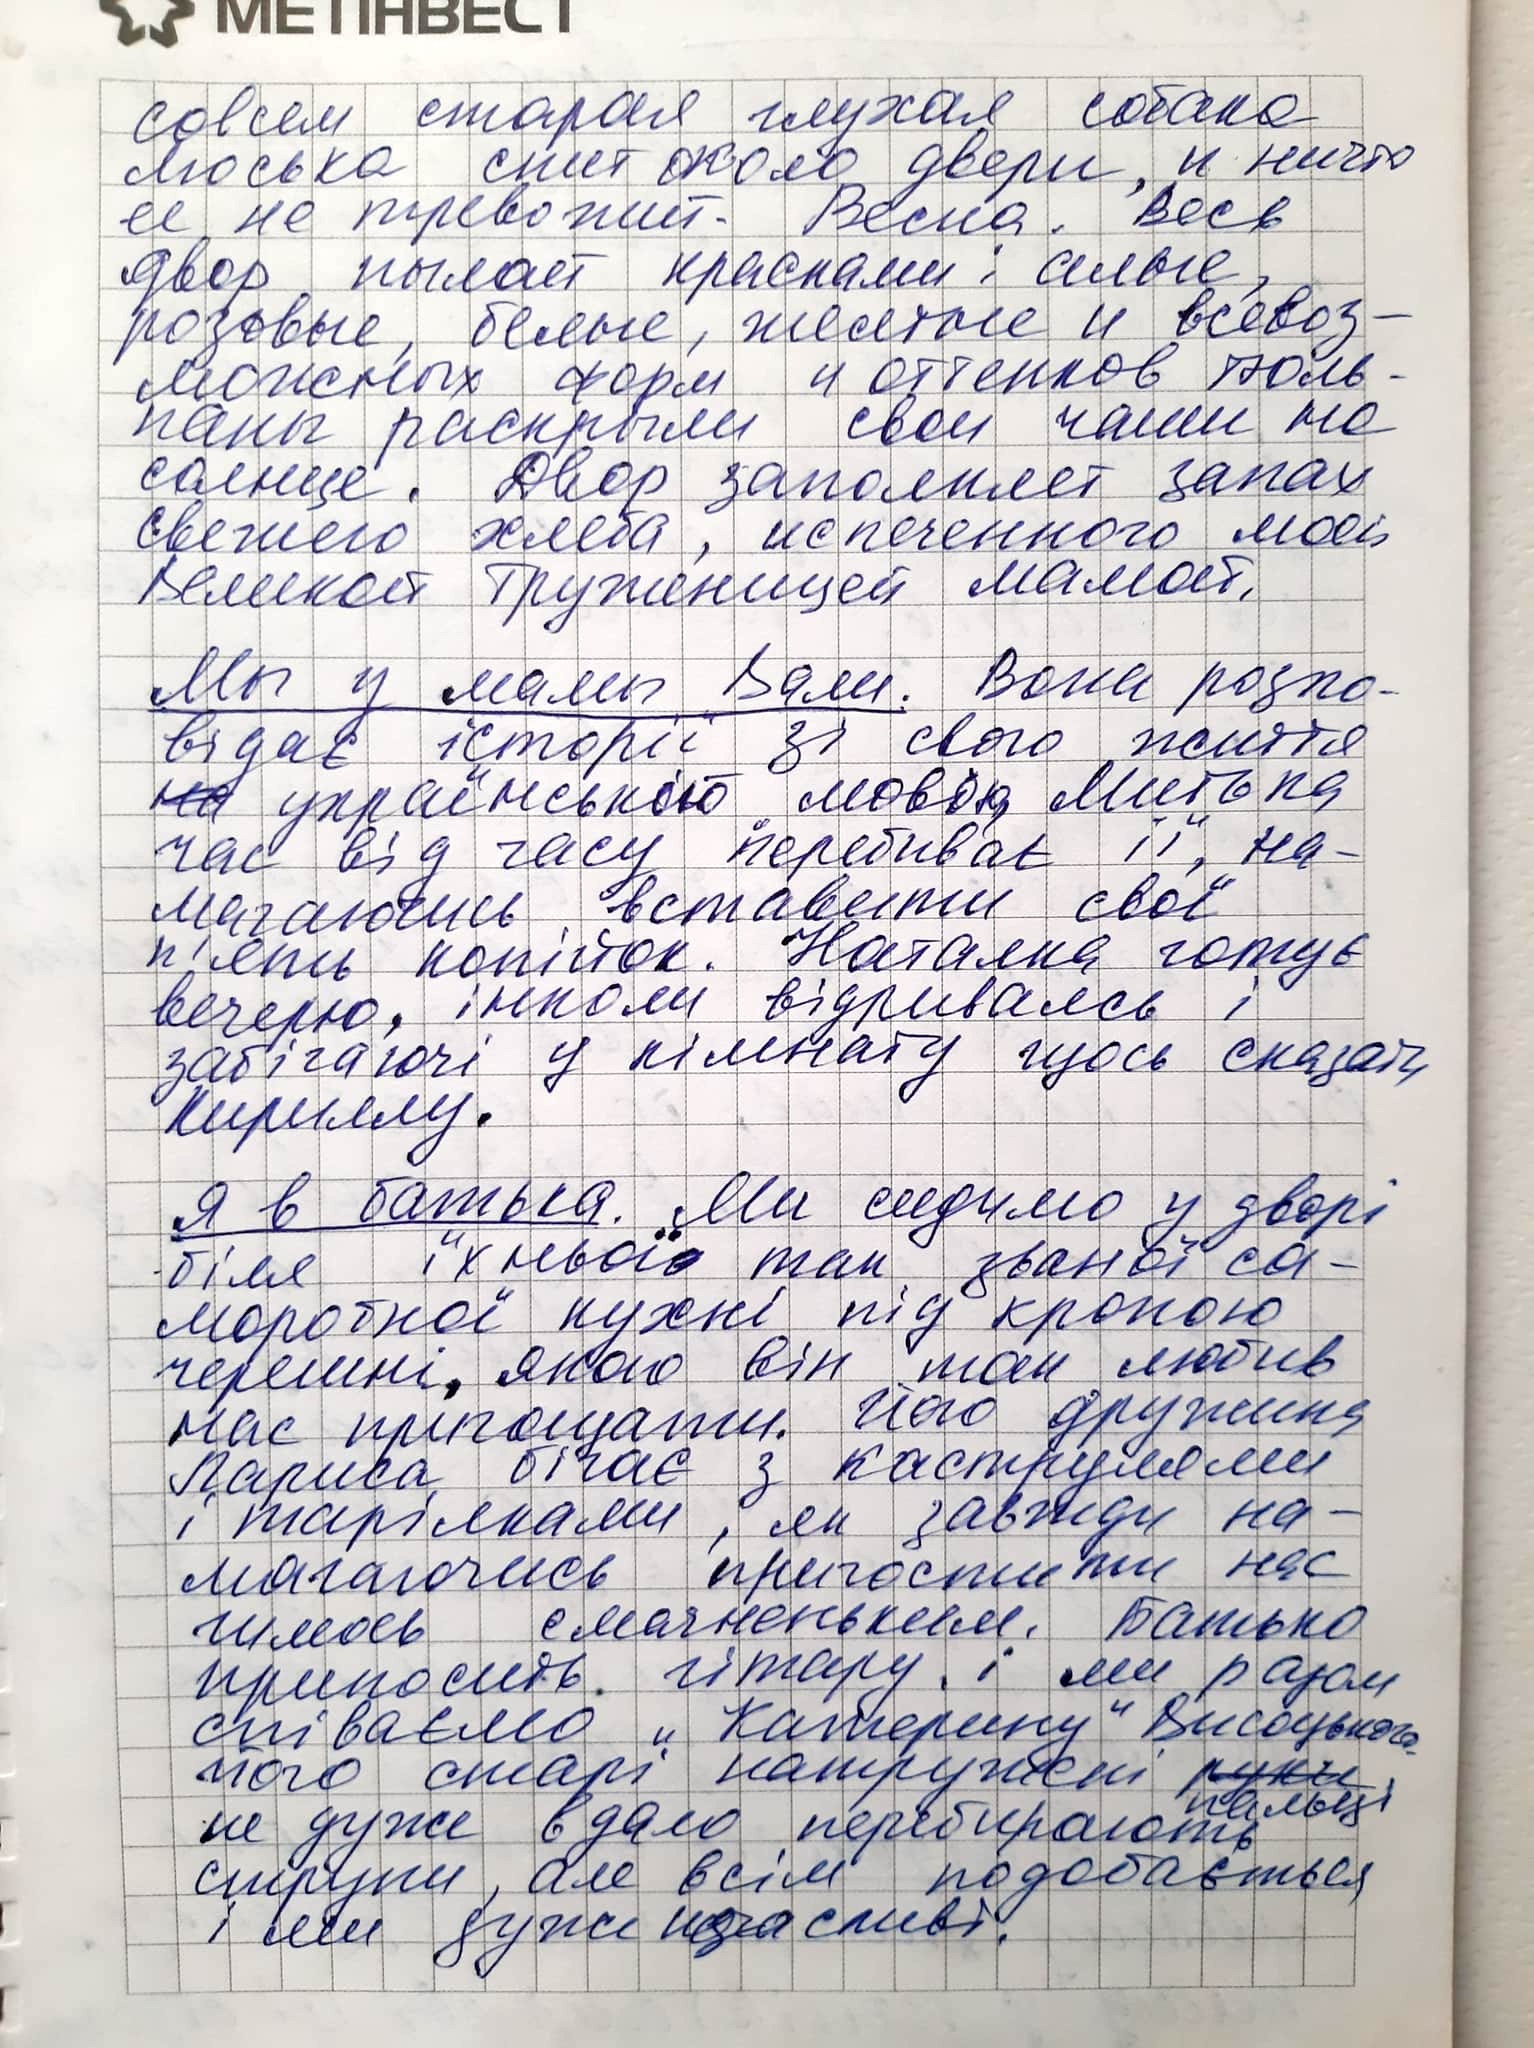 МЕТІНВЕСТ
совсем старая глухая собака
Люська спит около двери, и ничто
ее не тревожит. Весна. Весь
двор пылает красками: алые,
розовые, белые, желтые и всевоз-
можных форм и оттенков тюль-
паны раскрыли свои чаши на
солнце. Двор заполняет запах
свежего хлеба, испеченного моей
Великой Труженицей мамой.
Мы у мамы Вали. Вона розпо-
відає історії зі свого життя
на українською мовою, Митька
час від часу перебиває її, на-
магаючись вставити свої
п'ять копійок. Наталка готує
вечерю, інколи відриваясь і
забігаючі у кімнату щось сказати
Кириллу.
Я в батька. Ми сидимо у дворі
біля їхньої так званої са-
моробної кухні під кроною
черешні, якою він так любив
нас пригощати. Його дружина
Лариса бігає з каструлями
і тарілками, як завжди на-
магаючись пригостити нас
чимось смачненьким. Батько
приносить гітару і ми разом
співаємо „Катерину" Висоцького.
Його старі натружені руки
пальці
не дуже вдало перебирають
струни, але всім подобається
і ми дуже щасливі.